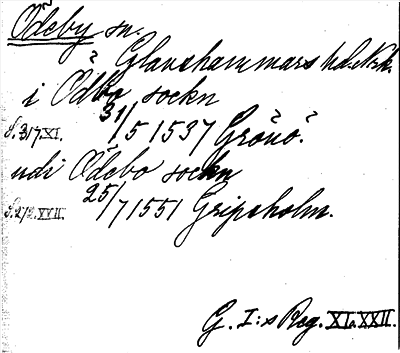 Ödeby sn.
Glanshammars hd. Nrk.
i Ödbo sockn
S. 317. XI. 31/5 1537 Grönö.
udi Ödebo sockn
25/7 1551 Gripsholm.
G. I:s Reg. XI o. XXII.